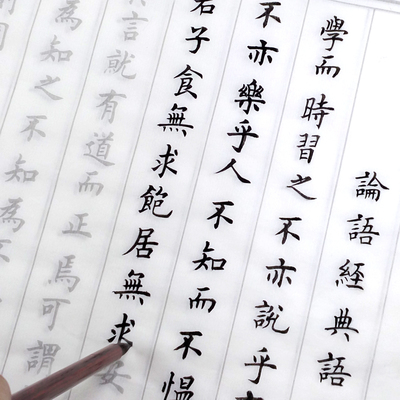 論語經典語
學而時習之不亦說乎
不亦樂乎人不知而不愠
君子食無求飽居無求安
言就有道而正焉可謂
為知之不知為不